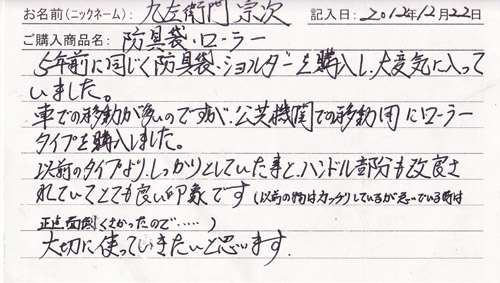 お名前（ニックネーム）： 九左衛門 宗次 記入日：2012年12月22日
ご購入商品名： 防具袋・ローラー
5年前に同じく防具袋・ショルダーを購入し、大変気に入って
いました。
車での移動が多いのですが、公共機関での移動用にローラー
タイプを購入しました。
以前のタイプより、しっかりとしていた事と、ハンドル部分も改良さ
れていてとても良い印象です（以前の物はカッチリしているが急いでいる時は
正直面倒くさかったので……）
大切に使っていきたいと思います．